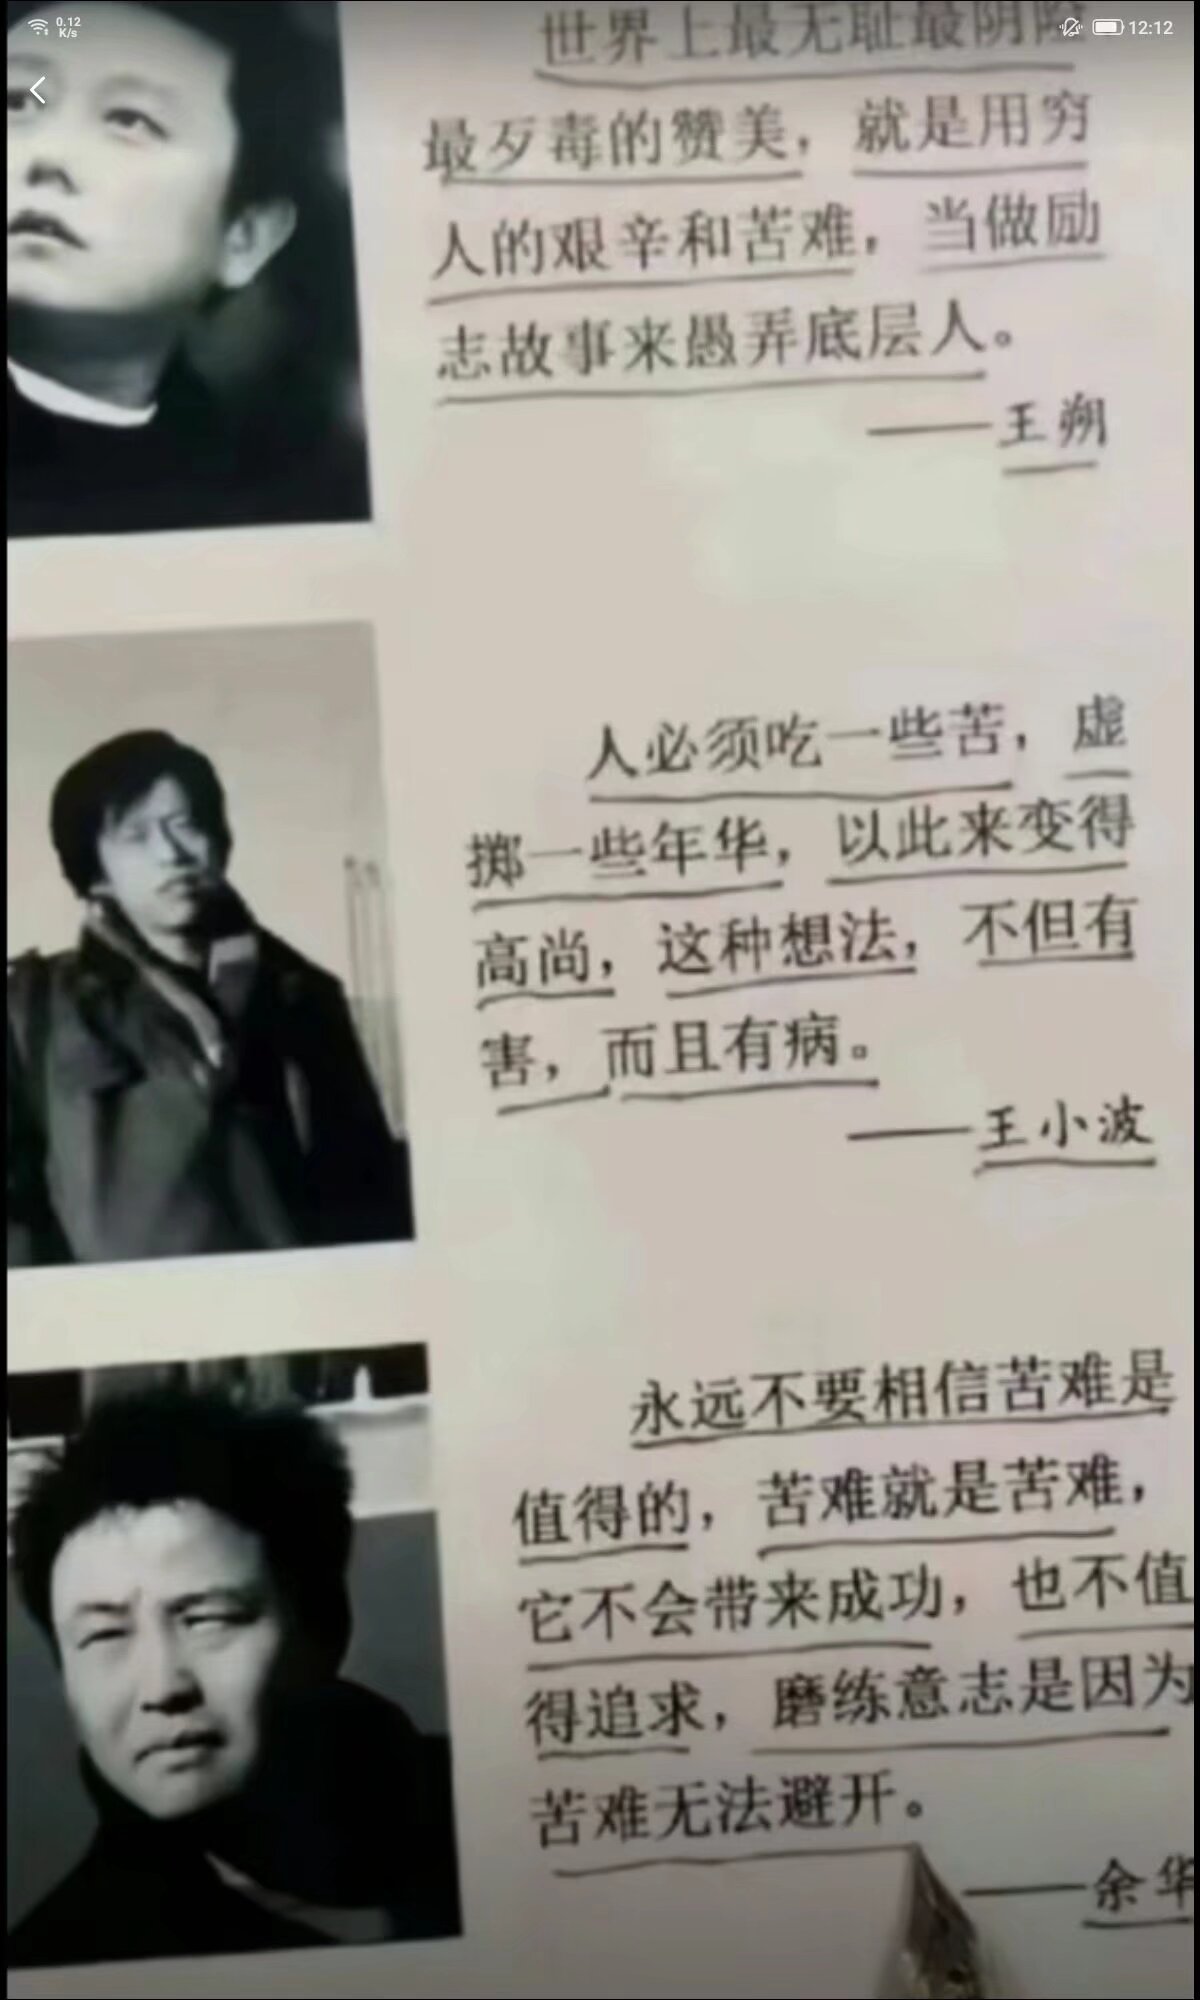 0.12
K/s
12:12
世界上最无耻最阴险
最歹毒的赞美，就是用穷
人的艰辛和苦难，当做励
志故事来愚弄底层人。
——王朔
人必须吃一些苦，虚
掷一些年华，以此来变得
高尚，这种想法，不但有
害，而且有病。
——王小波
永远不要相信苦难是
值得的，苦难就是苦难，
它不会带来成功，也不值
得追求，磨练意志是因为
苦难无法避开。
——余华